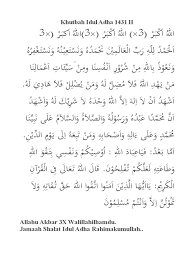 Khutbah Idul Adha 1431 H
اللهُ اَكْبَرُ (3×) اللهُ اَكْبَرُ (3×) اللهُ اَكْبَرُ (3×)
اَلْحَمْدُ لِلَّهِ رَبِّ الْعَالَمِيْنَ نَحْمَدُهُ وَنَسْتَعِيْنُهُ وَنَسْتَغْفِرُهُ
وَنَعُوْذُ بِاللهِ مِنْ شُرُوْرِ أَنْفُسِنَا وَمِنْ سَيِّئَاتِ أَعْمَالِنَا
مَنْ يَهْدِ اللهُ فَلاَ مُضِلَّ لَهُ وَمَنْ يُضْلِلْ فَلاَ هَادِيَ لَهُ.
اَشْهَدُ اَنْ لاَ اِلَهَ اِلاَّ اللهُ وَحْدَهُ لاَ شَرِيْكَ لَهُ وَاَشْهَدُ اَنَّ
مُحَمَّدًا عَبْدُهُ وَرَسُوْلُهُ وَالصَّلاَةُ وَالسَّلاَمُ عَلَى نَبِيِّنَا
مُحَمَّدٍ وَعَلَى آلِهِ وَاَصْحَابِهِ وَمَنْ تَبِعَهُ اِلَى يَوْمِ الدِّيْنِ.
اَمَّا بَعْدُ: فَيَاعِبَادَ اللهِ : اُوْصِيْكُمْ وَنَفْسِي بِتَقْوَى اللهِ
وَطَاعَتِهِ لَعَلَّكُمْ تُفْلِحُوْنَ. قَالَ اللهُ تَعَالَى فِى الْقُرْآنِ
الْكَرِيْمِ: يَااَيُّهَا الَّذِيْنَ آمَنُوا اتَّقُوا اللهَ حَقَّ تُقَاتِهِ وَلاَ
تَمُوْتُنَّ اِلاَّ وَاَنْتُمْ مُسْلِمُوْنَ
Allahu Akbar 3X Walillahilhamdu.
Jamaah Shalat Idul Adha Rahimakumullah..